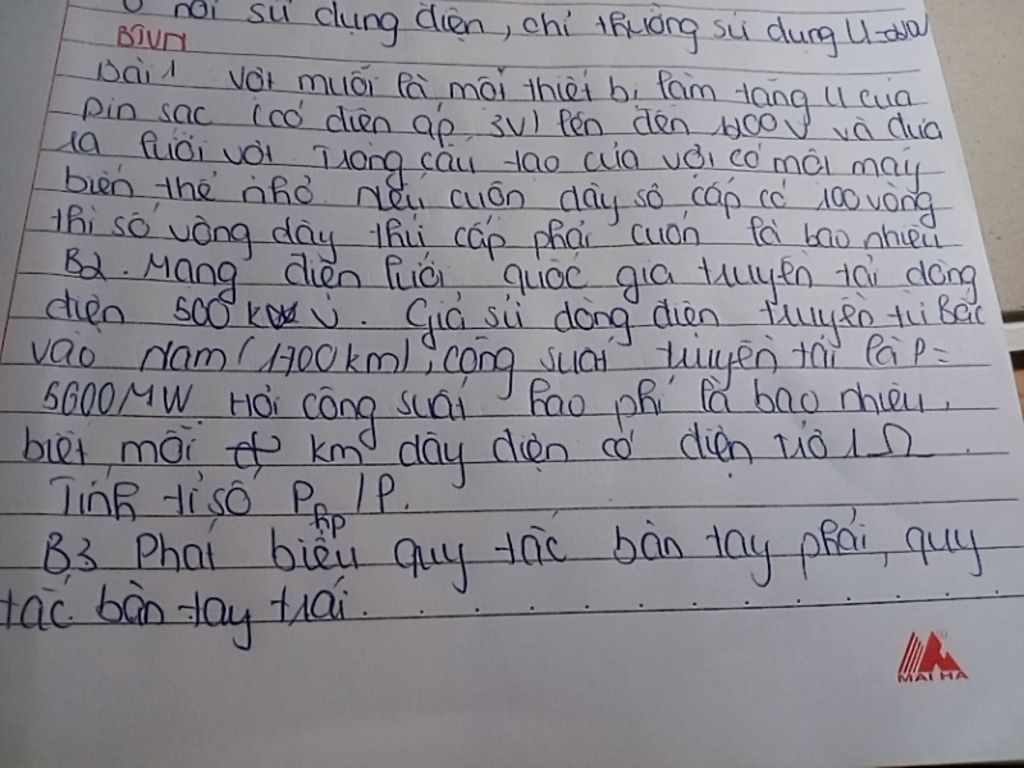 nơi sử dụng điện, chỉ thường sử dụng U
BTVN
Bài 1 Vợt muỗi là một thiết bị làm tăng U của
pin sạc (có điện áp 3V) lên đến 400V và đưa
ra lưới vợt Trong cấu tạo của vợt có một máy
biến thế nhỏ Nếu cuộn dây sơ cấp có 100 vòng
thì số vòng dây thứ cấp phải cuốn là bao nhiêu
B2. Mạng điện lưới quốc gia truyền tải dòng
điện 500k V. Giả sử dòng điện truyền từ Bắc
vào Nam (1700km), công suất truyền tải là P=
5600MW Hỏi công suất hao phí là bao nhiêu,
biết mỗi km dây điện có điện trở 1Ω.
Tính tỉ số Php/P.
B3 Phát biểu quy tắc bàn tay phải, quy
tắc bàn tay trái. . . . . . . . . . . . .
MAI HA